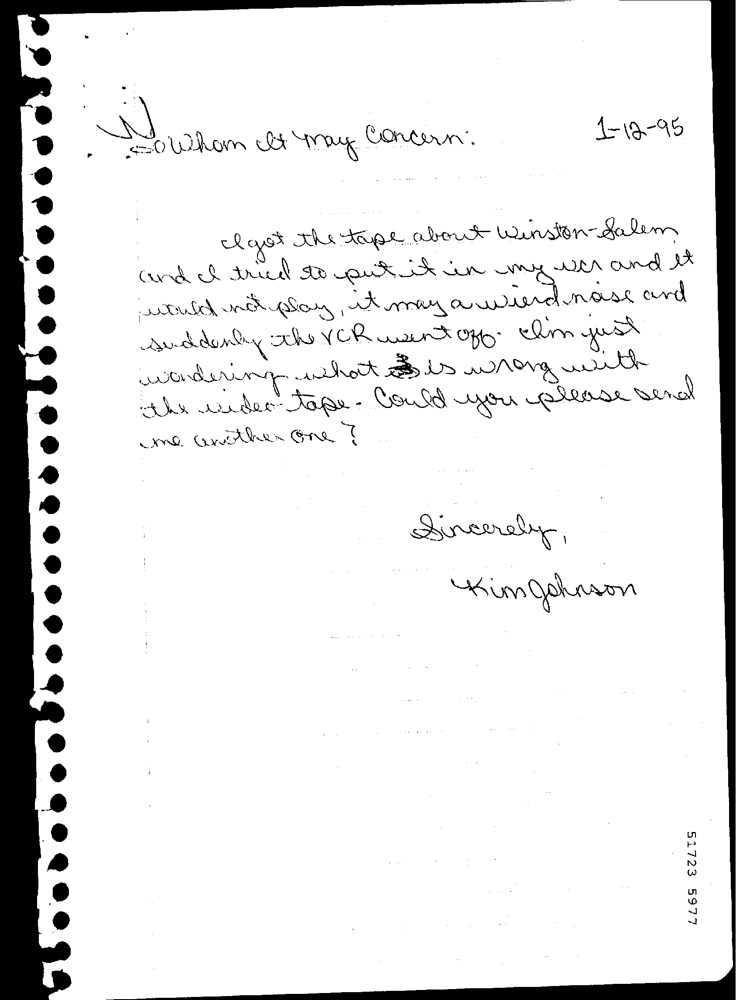 To Whom It May Concern:
1-12-95
I got the tape about Winston-Salem
and I tried to put it in my vcr and it
would not play, it may a wierd noise and
suddenly the VCR went off. I'm just
wondering what is wrong with
the video tape. Could you please send
me another one?
Sincerely,
Kim Johnson
51723 5977